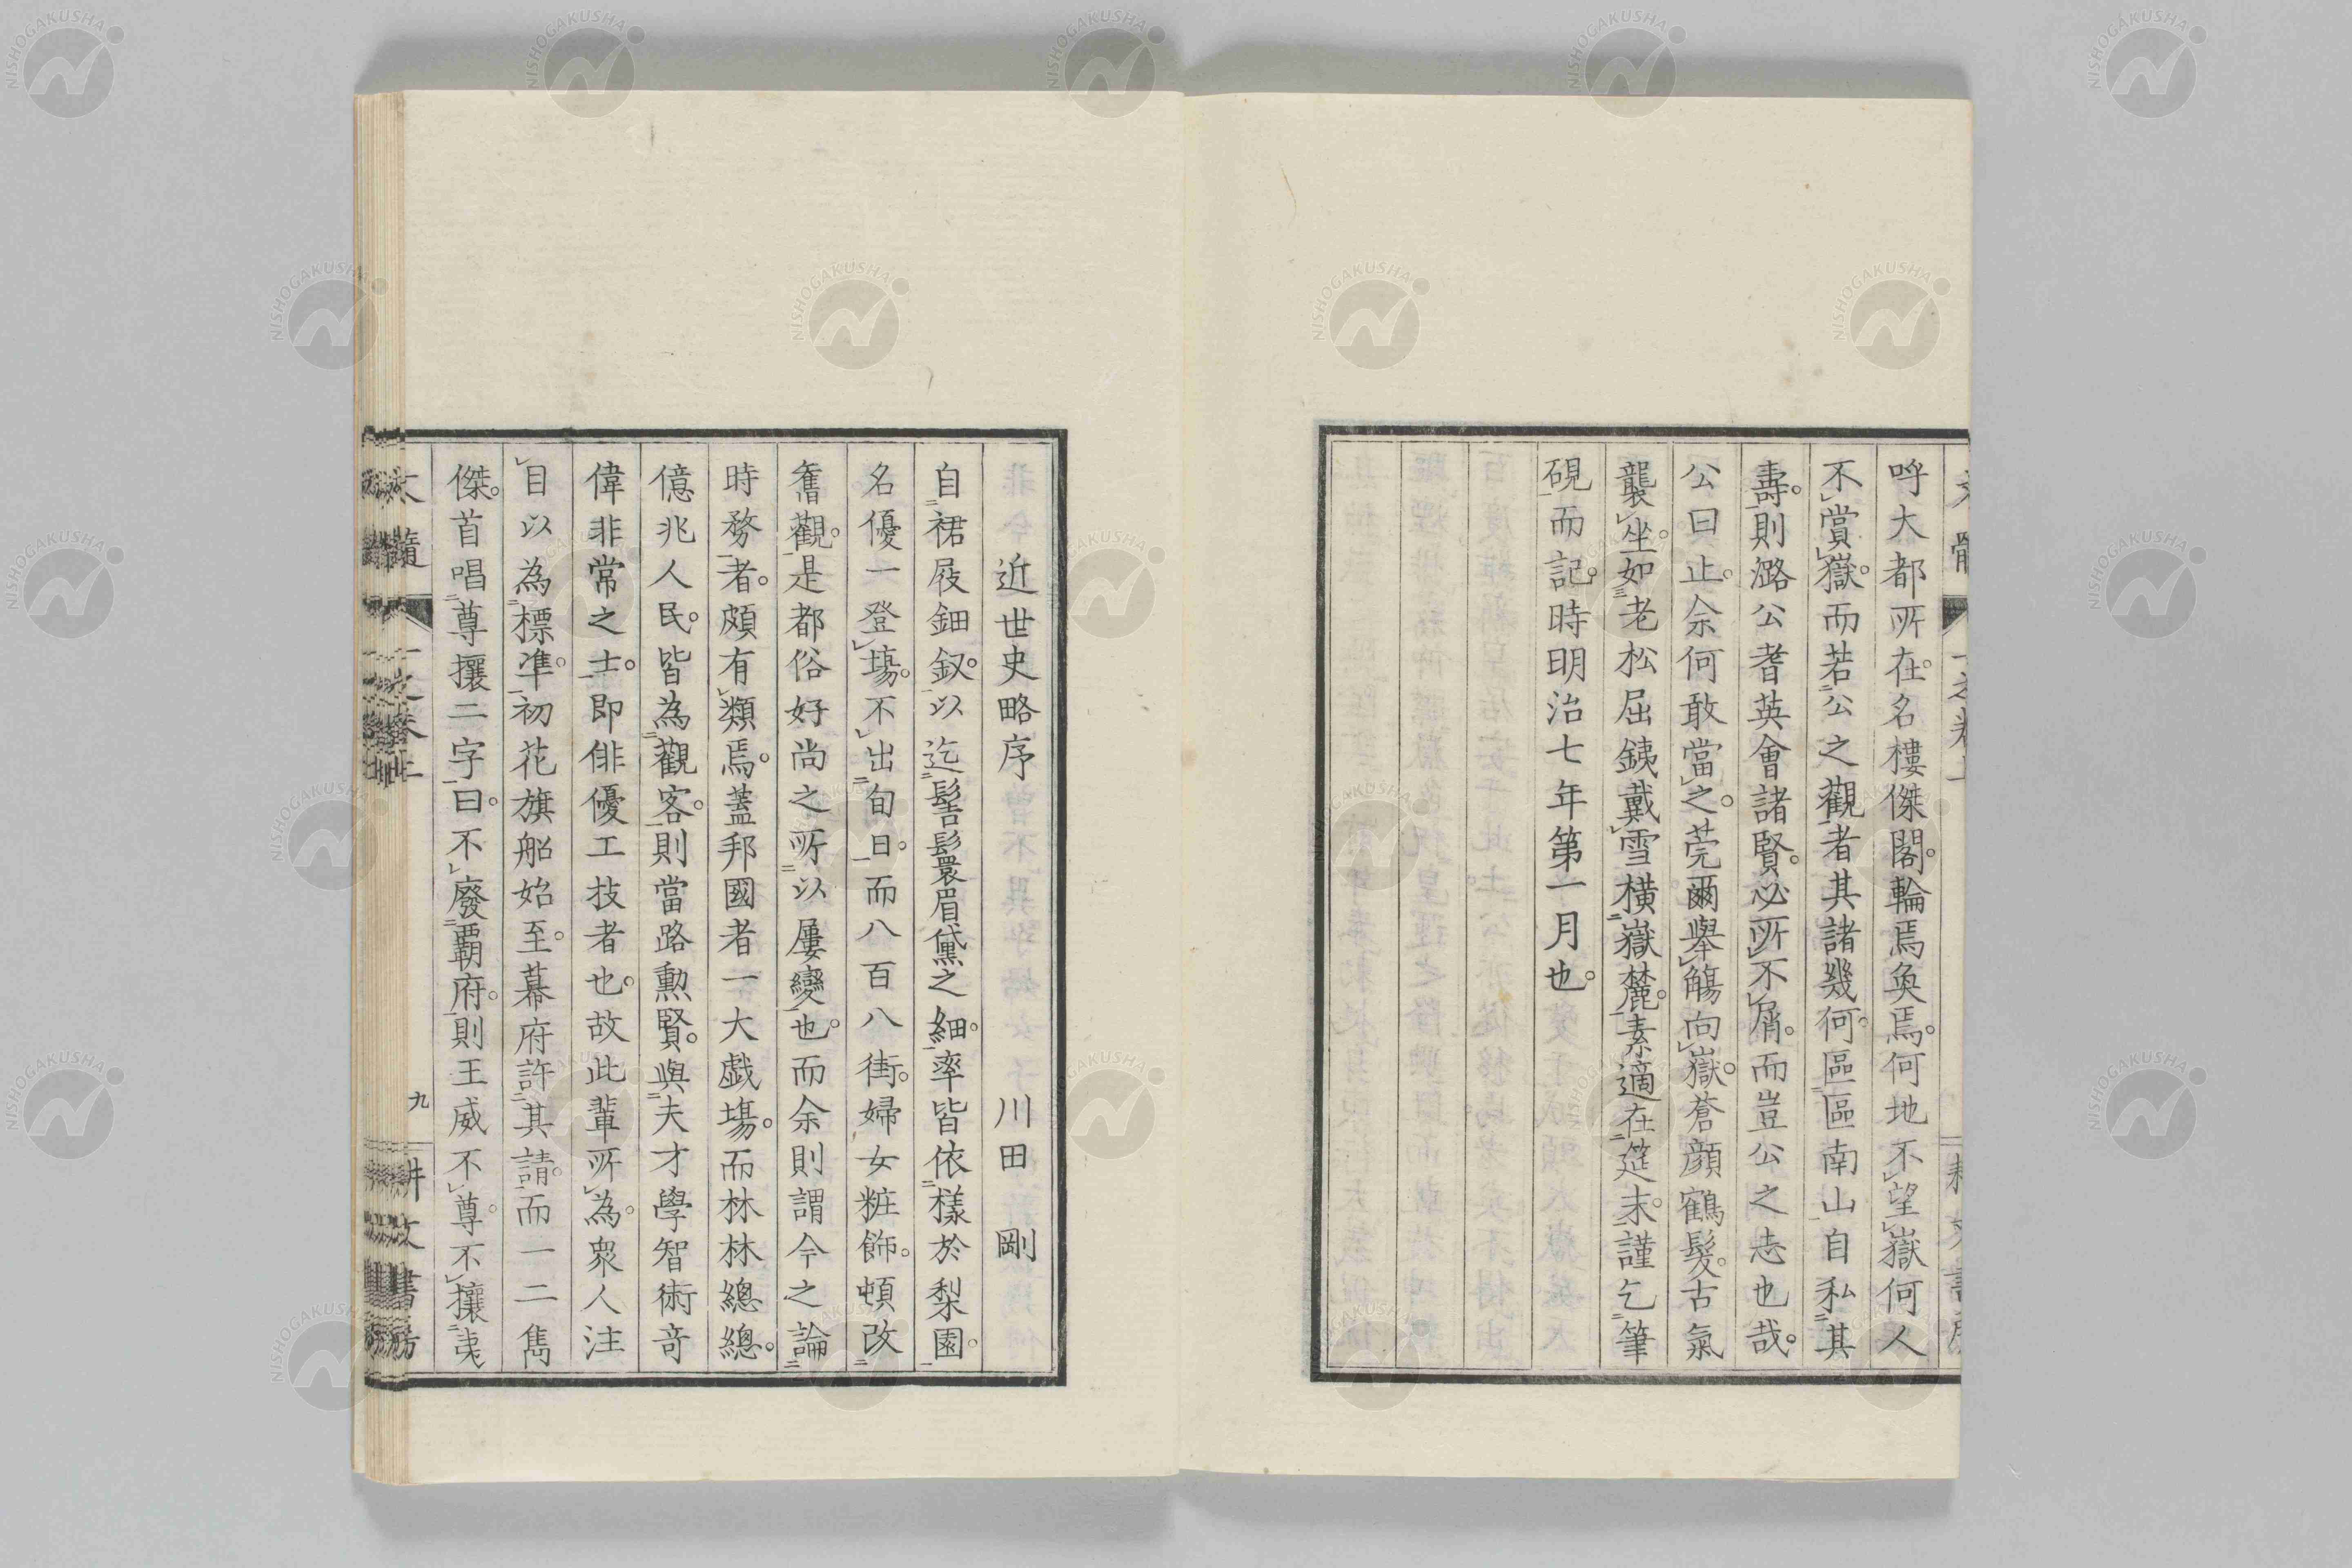 呼大都所在。名樓傑閣。輪焉奐焉。何地不望嶽何人
不賞嶽。而若公之觀者其諸幾何。區區南山自私其
壽。則潞公耆英會諸賢。必所不屑。而豈公之志也哉。
公曰止。余何敢當之。莞爾擧觴向嶽。蒼顔鶴髮。古氣
襲坐。如老松屈銕戴雪横嶽麓。素適在筵末。謹乞筆
硯而記。時明治七年第一月也。
近世史略序 川田 剛
自裙屐鈿釵。以迄髻鬟眉黛之細。率皆依樣於梨園。
名優一登塲。不出旬日。而八百八街。婦女粧飾。頓改
舊觀。是都俗好尚之所以屢變也。而余則謂今之論
時務者。頗有類焉。蓋邦國者一大戯塲。而林林總總。
億兆人民。皆為觀客。則當路勲賢。與夫才學智術竒
偉非常之士。即俳優工技者也。故此輩所為。衆人注
目以為標準。初花旗船始至。幕府許其請。而一二雋
傑。首唱尊攘二字曰。不廢覇府。則王威不尊。不攘夷
九
NISHOGAKUSHA